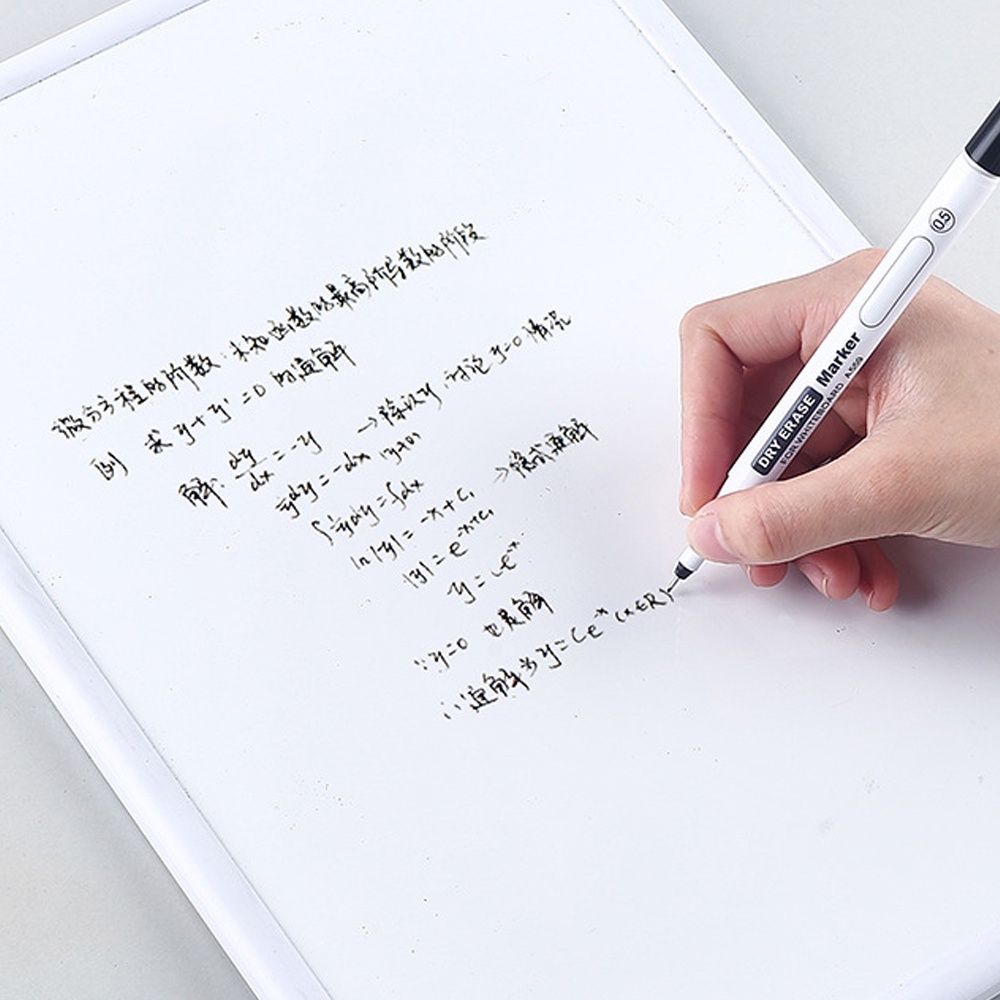 微分方程的阶数：未知函数的最高阶导数的阶段
例 求 y+y'=0 的通解
解: dy/dx = -y →除以y,讨论y=0情况
1/y dy = -dx (y≠0)
∫1/y dy = ∫dx
ln|y| = -x+C₁ →隐式通解
|y| = e^(-x+C₁)
y = Ce^(-x)
∵y=0 也是解
∴通解为 y=Ce^(-x) (x∈R)
05
DRY ERASE Marker
FOR WHITEBOARD A569